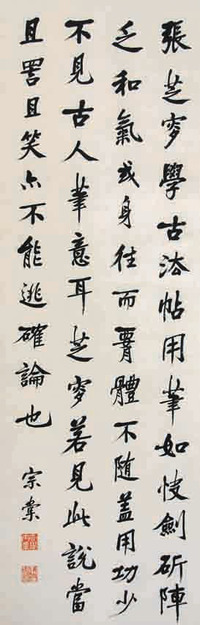 張芝學古法帖用筆如快劍斫陣
乏和氣或身往而體不隨蓋用功少
不見古人筆意耳芝若見此說當
且詈且笑亦不能逃確論也
宗